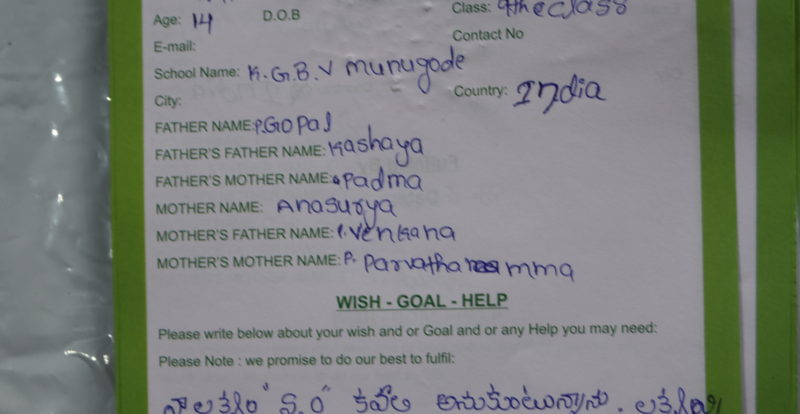 Age: 14 D.O.B Class: 9the class
E-mail: Contact No
School Name: K.G.B.V munugode
City: Country: India
FATHER NAME: P.GOPal
FATHER'S FATHER NAME: Kashaya
FATHER'S MOTHER NAME: Padma
MOTHER NAME: Anasurya
MOTHER'S FATHER NAME: Venkana
MOTHER'S MOTHER NAME: P. Parvathamma
WISH - GOAL - HELP
Please write below about your wish and or Goal and or any Help you may need:
Please Note : we promise to do our best to fulfil:
నా లక్ష్యం అనుకుంటున్నాను.